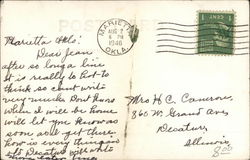 POST CARD
MARIETTA
AUG 2
1946
OKLA.
1¢
Marietta Okla:
Dear Jean
after so long a time
it is really to hot to
think so cant write
very much. Dont know
when I will be home
will let you know as
soon as I get there.
how is every thing in
Decatur
Mrs H C Cameron
860 W. Grand Ave
Decatur,
Illinois
8.00